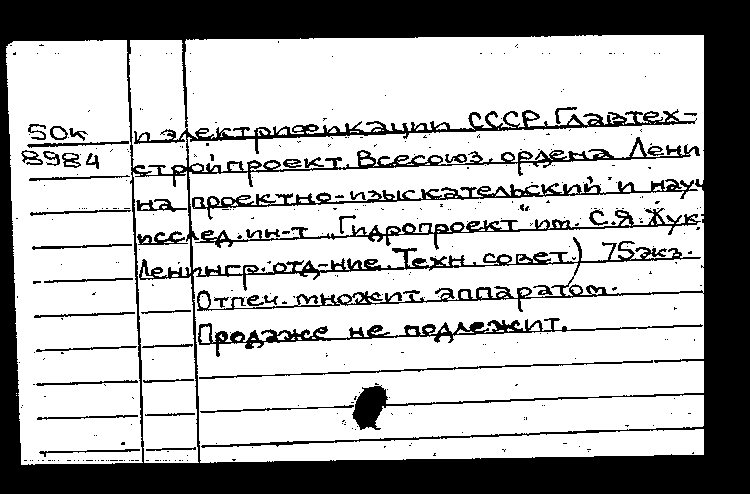 50к и электрификации СССР. Главтех-
8984 стройпроект. Всесоюз. ордена Лени
на проектно-изыскательский и науч
исслед. ин-т „Гидропроект" им. С.Я. Жук-
Ленингр. отд-ние. Техн. совет.) 75экз.
Отпеч. множит. аппаратом.
Продаже не подлежит.